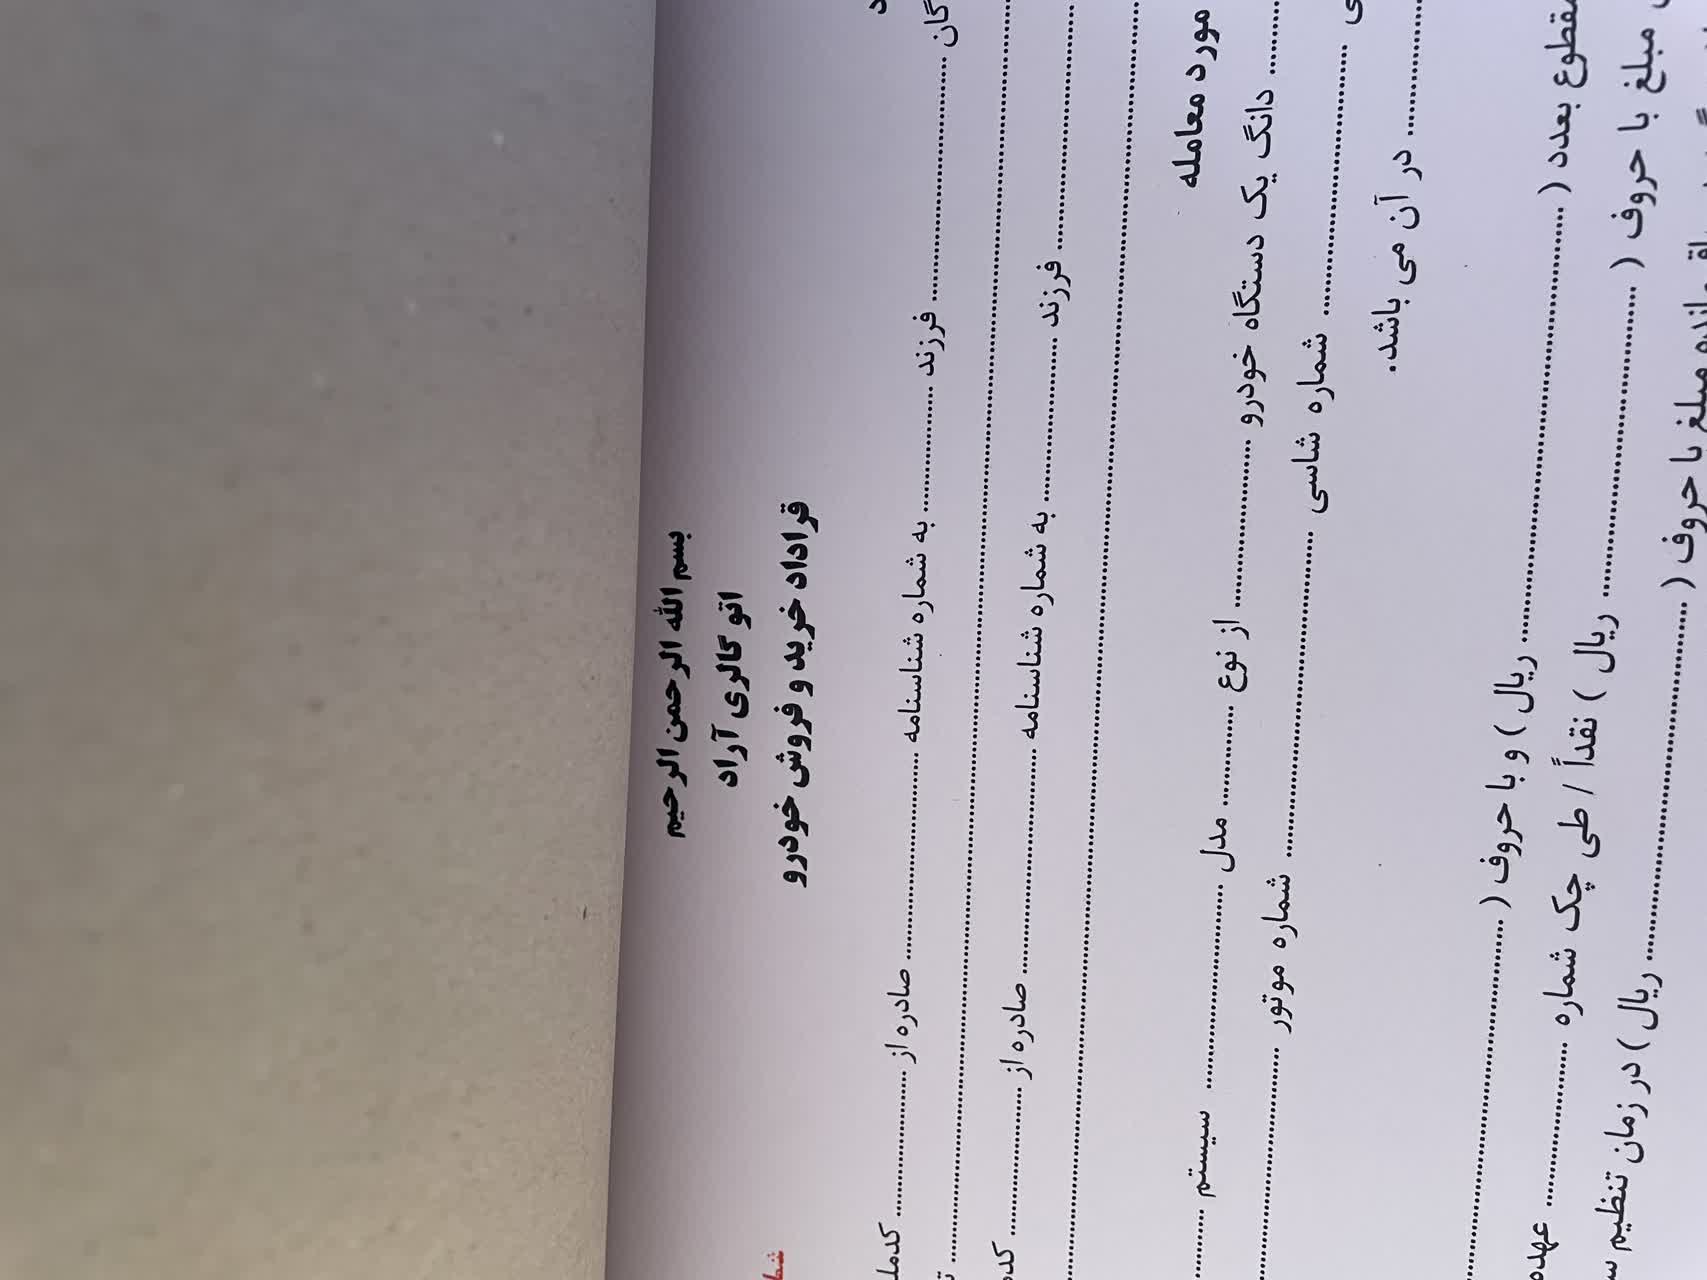 بسم الله الرحمن الرحیم
اتو گالری آراد
قراداد خرید و فروش خودرو
گان ........ فرزند ........ به شماره شناسنامه ........ صادره از ........ کدمل
........ فرزند ........ به شماره شناسنامه ........ صادره از ........
مورد معامله
........ دانگ یک دستگاه خودرو ........ از نوع ........ مدل ........ سیستم ........
ی ........ شماره شاسی ........ شماره موتور ........
........ در آن می باشد.
مقطوع بعدد ( ........ ریال ) و با حروف ( ........
مبلغ با حروف ( ........ ریال ) نقداً / طی چک شماره ........ عهده
مبلغ با حروف ( ........ ریال ) در زمان تنظیم